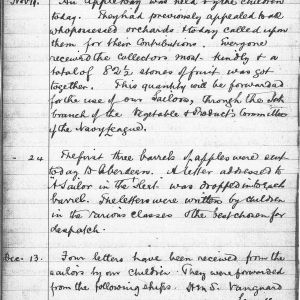 Nov. 11. An apple day was held by the children
today. They had previously appealed to all
who possessed orchards & today called upon
them for their Contributions. Everyone
received the Collectors most kindly & a
total of 82½ stones of fruit was got
together. This quantity will be forwarded
for the use of our Sailors, through the
branch of the Vegetable & Products Committee
of the Navy League.
- 24. The first three barrels of apples were sent
today to Aberdeen. A letter addressed to
"A Sailor in the Fleet" was dropped into each
barrel. The letters were written by children
in the various classes & the best chosen for
despatch.
Dec. 13. Four letters have been received from the
sailors by our children. They were forwarded
from the following ships. H.M.S. Vanguard